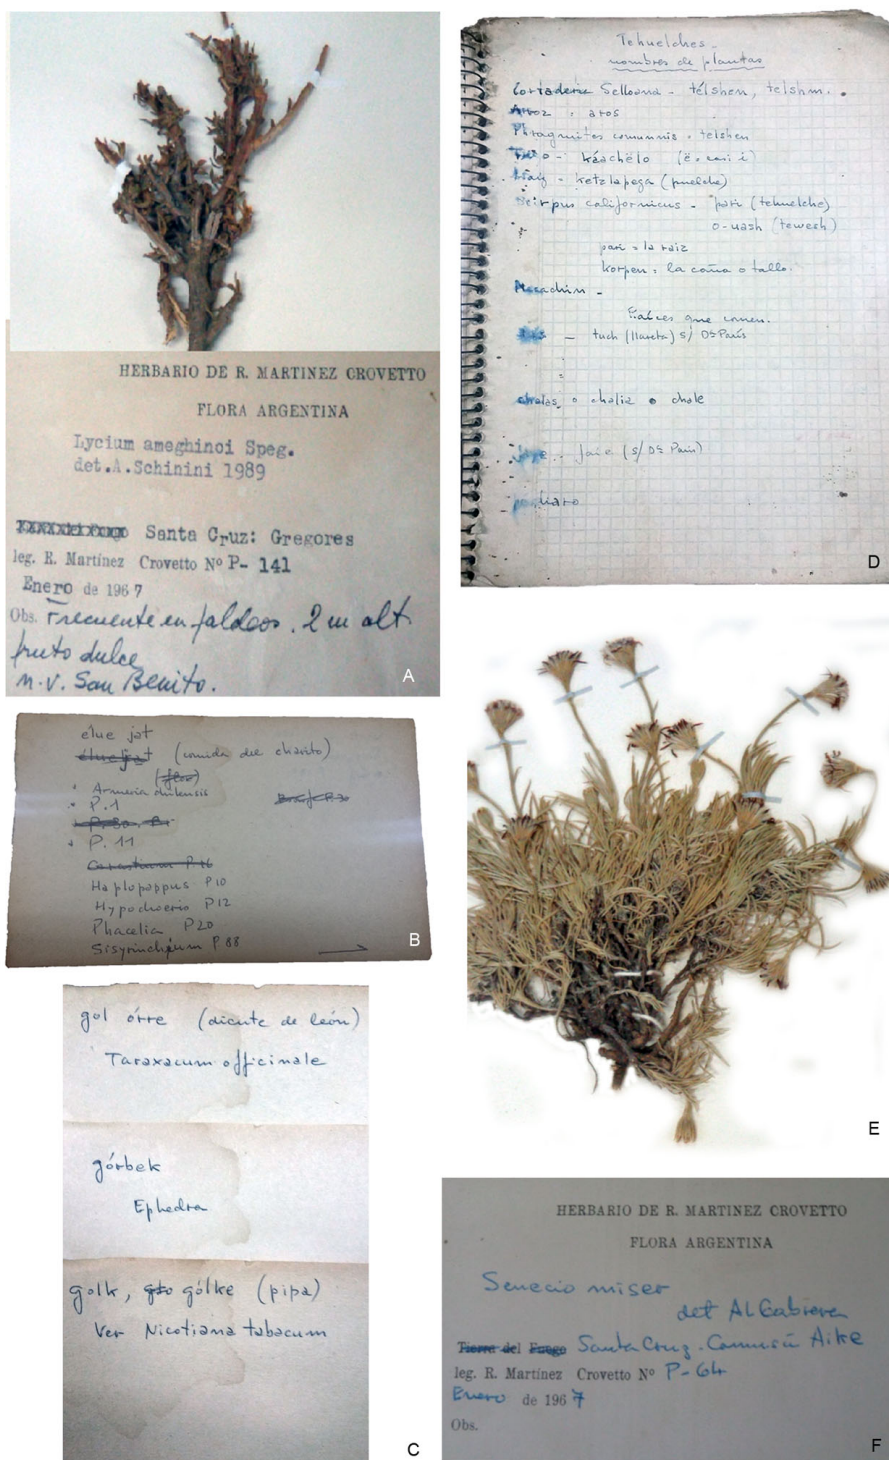 HERBARIO DE R. MARTINEZ CROVETTO
FLORA ARGENTINA
Lycium ameghinoi Speg.
det.A.Schinini 1989
Santa Cruz: Gregores
leg. R. Martínez Crovetto Nº P- 141
Enero de 1967
Obs. Frecuente en faldeos. 2 m alt.
fruto dulce
n.v. San Benito.
A
elue jat
élue jat (comida del chorito)
(flor)
Armeria chilensis
P.1
P.11
Cerastium P.16
Haplopappus P10
Hypochoeris P12
Phacelia P20
Sisyrinchium P 88
B
gol órre (diente de león)
Taraxacum officinale
górbek
Ephedra
golk, gólke (pipa)
Ver Nicotiana tabacum
C
Tehuelches -
nombres de plantas
Cortaderia Selloana - télshen, telshm.
Arroz = aros
Phragmites communis - telshen
Trigo - káachëlo (ë = casi i)
Maiz - ketzlapega (puelche)
Scirpus californicus - pari (tehuelche)
o-uash (tewesh)
pari = la raiz
korpen = la caña o tallo.
Macachin -
Raíces que comen.
- tuch (llareta) s/ Dª París
chalas o chalia o chale
- jaie (s/ Dª París)
D
E
HERBARIO DE R. MARTINEZ CROVETTO
FLORA ARGENTINA
Senecio miser
det AL Cabrera
Tierra del Fuego Santa Cruz. Camusú Aike
leg. R. Martínez Crovetto Nº P-64
Enero de 1967
Obs.
F